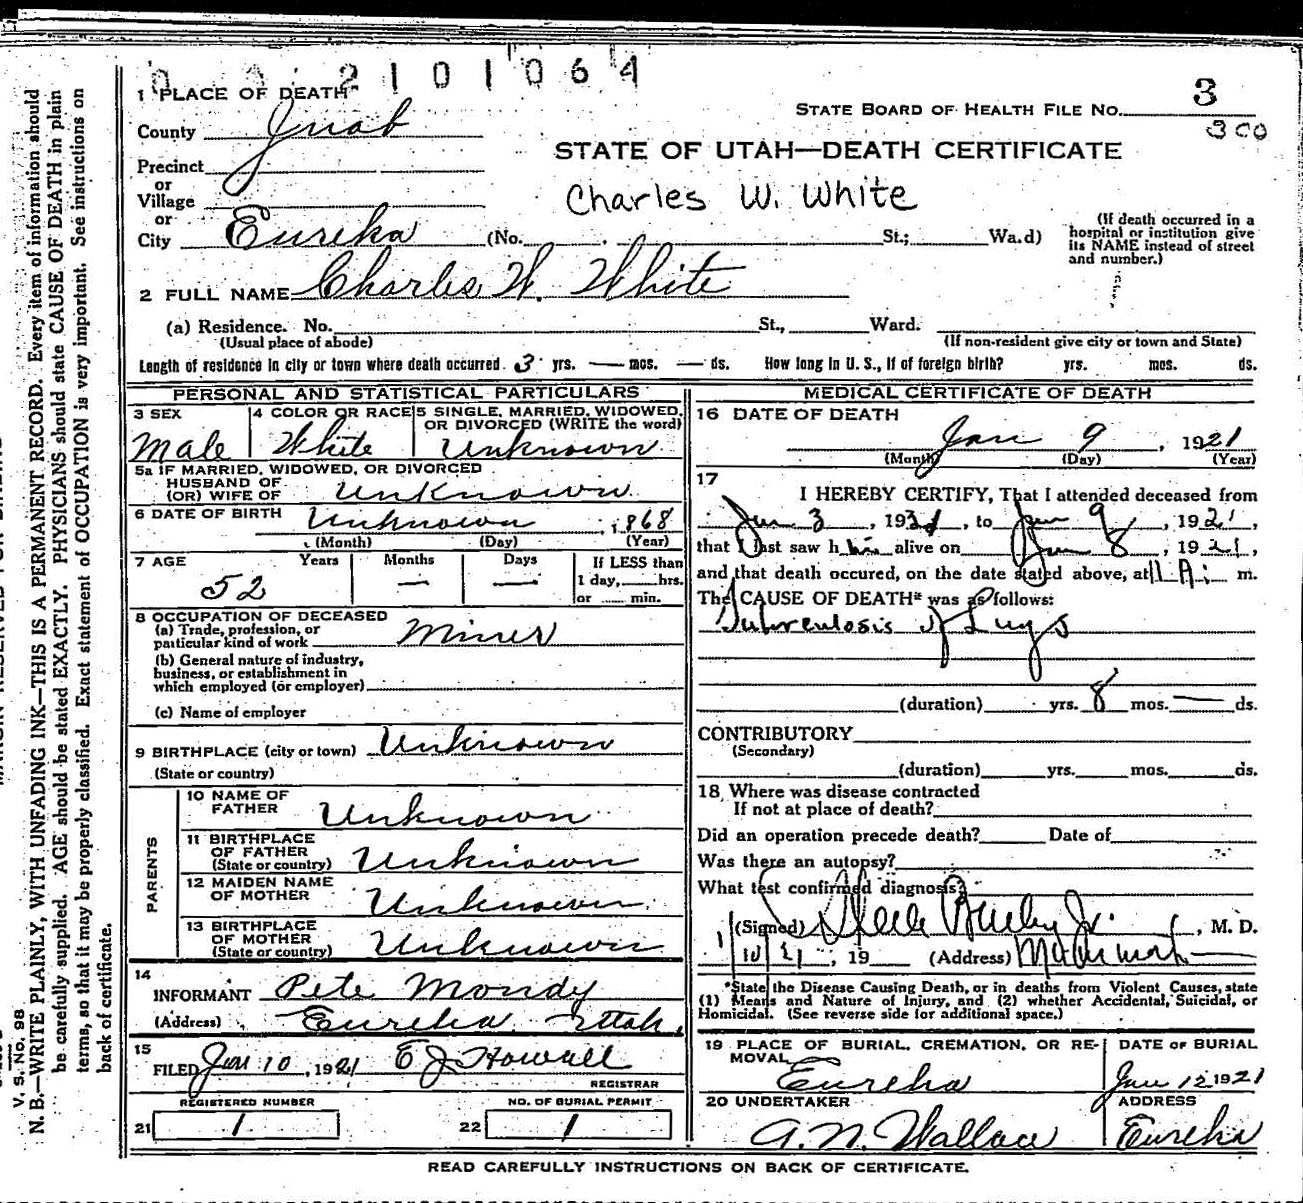 2101064
1 PLACE OF DEATH
County Juab
STATE BOARD OF HEALTH FILE No. 3
300
Precinct
or
Village
or
City Eureka (No. St.; Wa.d)
STATE OF UTAH—DEATH CERTIFICATE
Charles W. White
(If death occurred in a
hospital or institution give
its NAME instead of street
and number.)
2 FULL NAME Charles W. White
(a) Residence. No. St., Ward.
(Usual place of abode) (If non-resident give city or town and State)
Length of residence in city or town where death occurred 3 yrs. — mos. — ds. How long in U. S., if of foreign birth? yrs. mos. ds.
PERSONAL AND STATISTICAL PARTICULARS
3 SEX
Male
4 COLOR OR RACE
White
5 SINGLE, MARRIED, WIDOWED,
OR DIVORCED (WRITE the word)
Unknown
5a IF MARRIED, WIDOWED, OR DIVORCED
HUSBAND OF
(OR) WIFE OF Unknown
6 DATE OF BIRTH Unknown , 1868
(Month) (Day) (Year)
7 AGE Years Months Days If LESS than
1 day, hrs.
or min.
52 — —
8 OCCUPATION OF DECEASED
(a) Trade, profession, or
particular kind of work Miner
(b) General nature of industry,
business, or establishment in
which employed (or employer)
(c) Name of employer
9 BIRTHPLACE (city or town) Unknown
(State or country)
PARENTS
10 NAME OF
FATHER Unknown
11 BIRTHPLACE
OF FATHER
(State or country) Unknown
12 MAIDEN NAME
OF MOTHER Unknown
13 BIRTHPLACE
OF MOTHER
(State or country) Unknown
14
INFORMANT Pete Mondy
(Address) Eureka Utah.
15
FILED Jan 10, 1921 E J Howell
REGISTRAR
REGISTERED NUMBER
21 1
NO. OF BURIAL PERMIT
22 1
MEDICAL CERTIFICATE OF DEATH
16 DATE OF DEATH
Jan 9, 1921
(Month) (Day) (Year)
17
I HEREBY CERTIFY, That I attended deceased from
Jan 3, 1921, to Jan 9, 1921,
that I last saw him alive on Jan 8, 1921,
and that death occured, on the date stated above, at 11 A. m.
The CAUSE OF DEATH* was as follows:
Tuberculosis of Lungs
(duration) yrs. 8 mos. — ds.
CONTRIBUTORY
(Secondary)
(duration) yrs. mos. ds.
18 Where was disease contracted
If not at place of death?
Did an operation precede death? Date of
Was there an autopsy?
What test confirmed diagnosis?
(Signed) Steele Bailey Jr. , M. D.
1/10/21, 19 (Address)
*State the Disease Causing Death, or in deaths from Violent Causes, state
(1) Means and Nature of Injury, and (2) whether Accidental, Suicidal, or
Homicidal. (See reverse side for additional space.)
19 PLACE OF BURIAL, CREMATION, OR RE-
MOVAL
Eureka
DATE OF BURIAL
Jan 12 1921
20 UNDERTAKER
A. N. Wallace
ADDRESS
Eureka
READ CAREFULLY INSTRUCTIONS ON BACK OF CERTIFICATE.
V. S. No. 98
N. B.—WRITE PLAINLY, WITH UNFADING INK—THIS IS A PERMANENT RECORD. Every item of information should
be carefully supplied. AGE should be stated EXACTLY. PHYSICIANS should state CAUSE OF DEATH in plain
terms, so that it may be properly classified. Exact statement of OCCUPATION is very important. See instructions on
back of certificate.